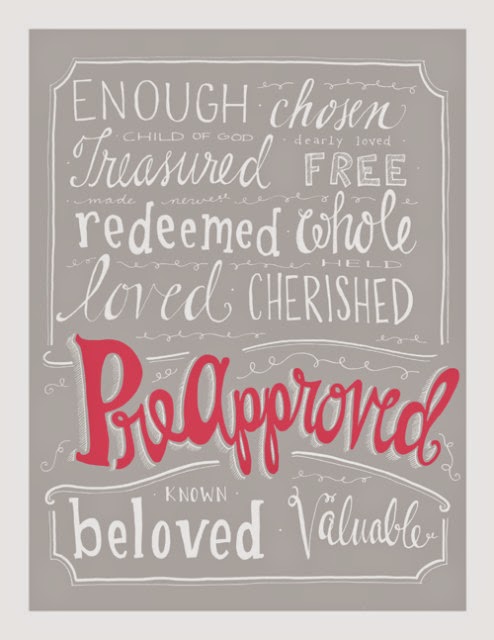 ENOUGH · chosen
CHILD OF GOD · dearly loved ·
Treasured FREE
· made new
redeemed · whole
HELD
loved · CHERISHED
PreApproved
· KNOWN ·
beloved · Valuable